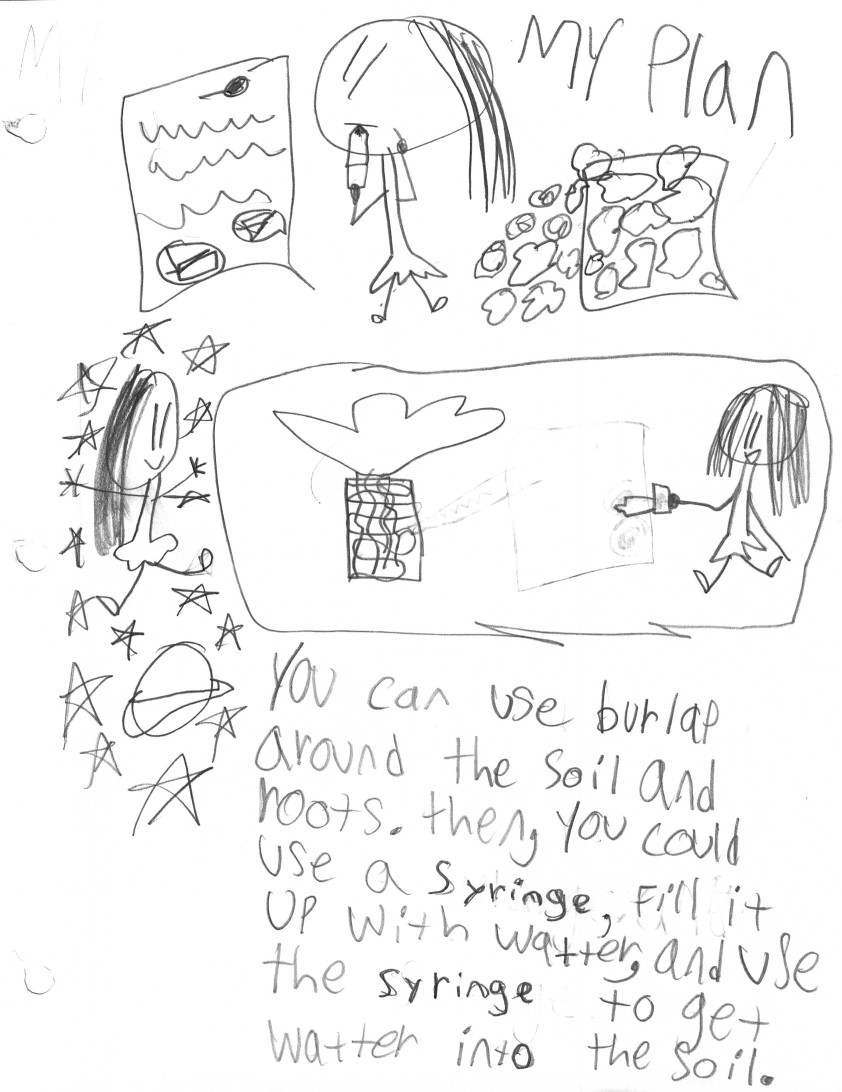 My Plan
You can use burlap
around the soil and
roots. then, you could
use a syringe, Fill it
up with watter, and use
the syringe to get
watter into the soil.